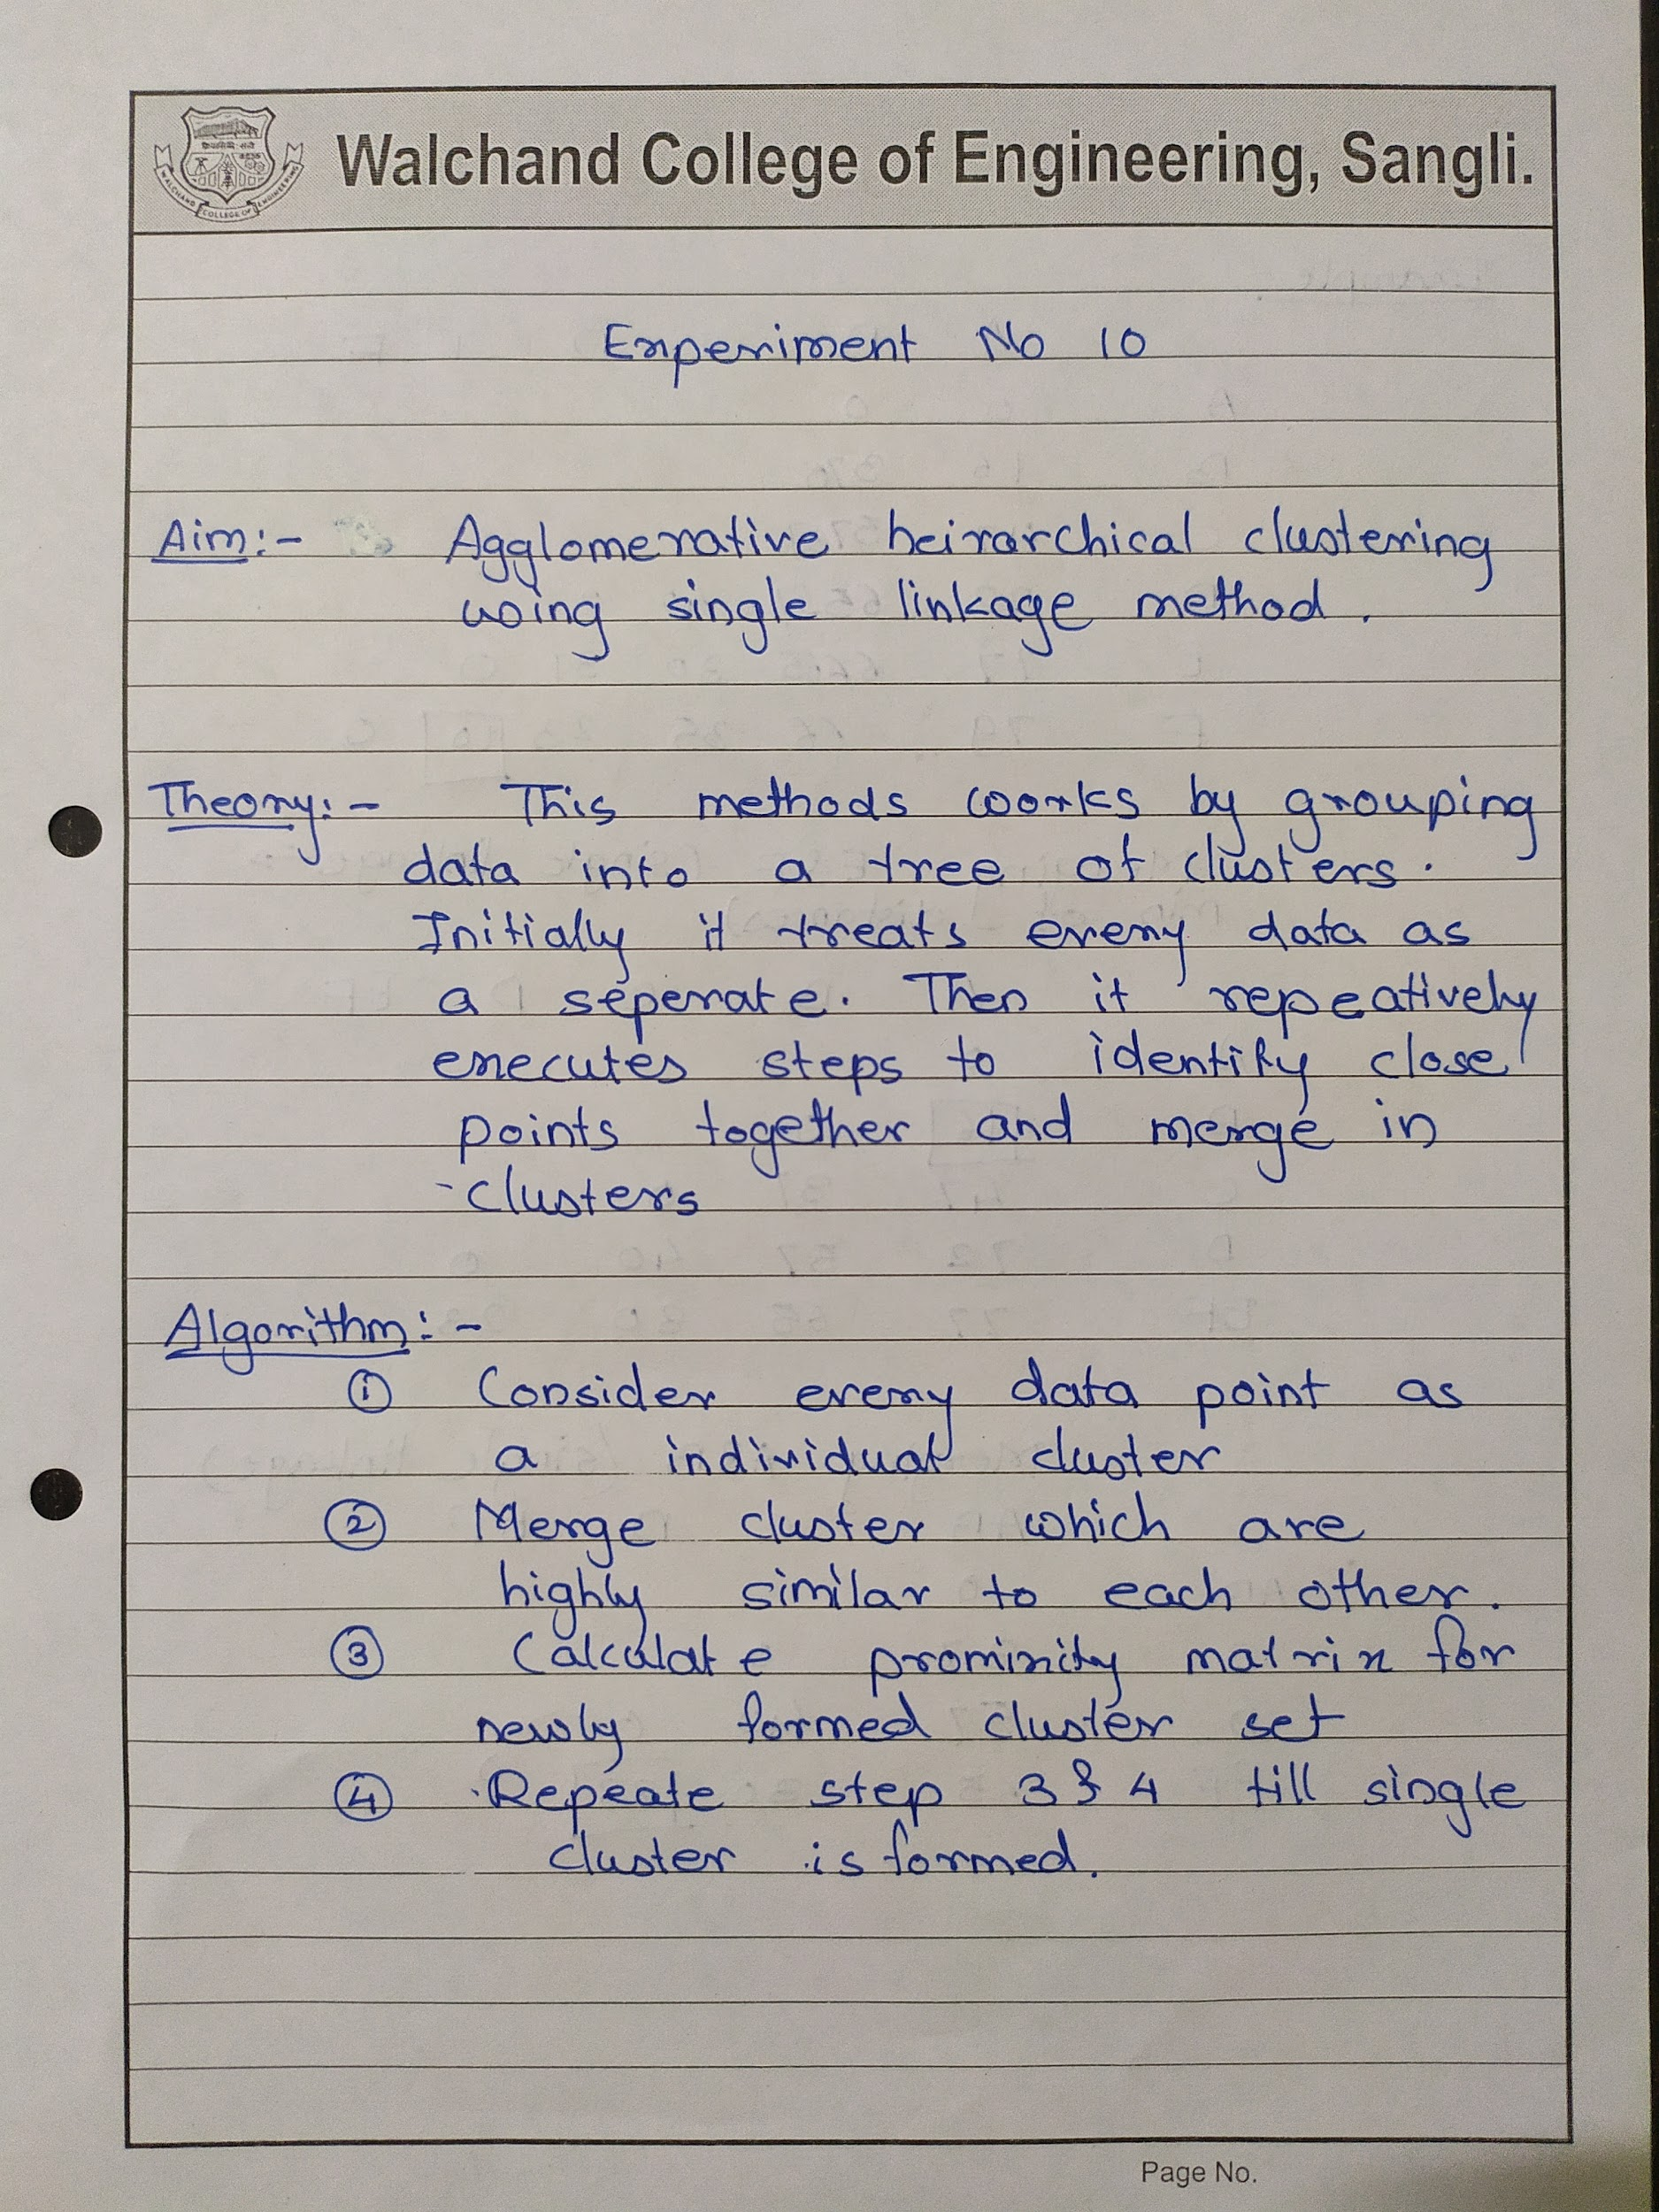 Walchand College of Engineering, Sangli.
WALCHAND COLLEGE OF ENGINEERING
Experiment No 10
Aim:- Agglomerative heirarchical clustering
using single linkage method.
Theory:- This methods works by grouping
data into a tree of clusters.
Initially it treats every data as
a seperate. Then it repeatively
executes steps to identify close
points together and merge in
clusters
Algorithm:-
① Consider every data point as
a individual cluster
② Merge cluster which are
highly similar to each other.
③ Calculate prominity matrix for
newly formed cluster set
④ Repeate step 3 & 4 till single
cluster is formed.
Page No.